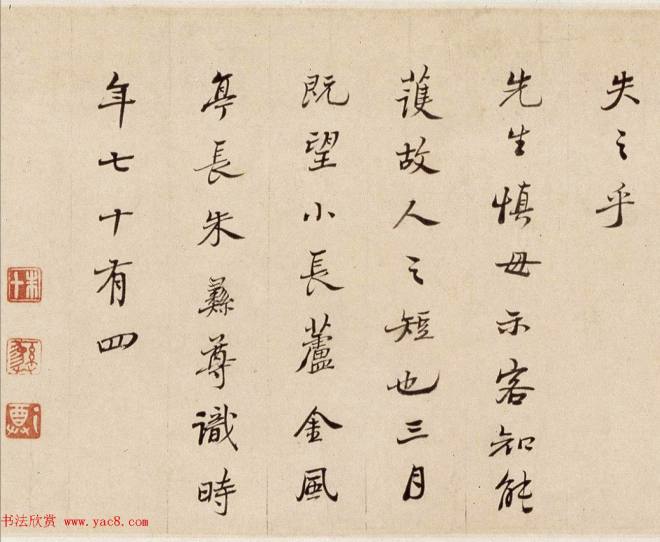 失之乎
先生慎毋示客知能
護故人之短也三月
既望小長蘆金風
亭長朱彝尊識時
年七十有四
书法欣赏 www.yac8.com